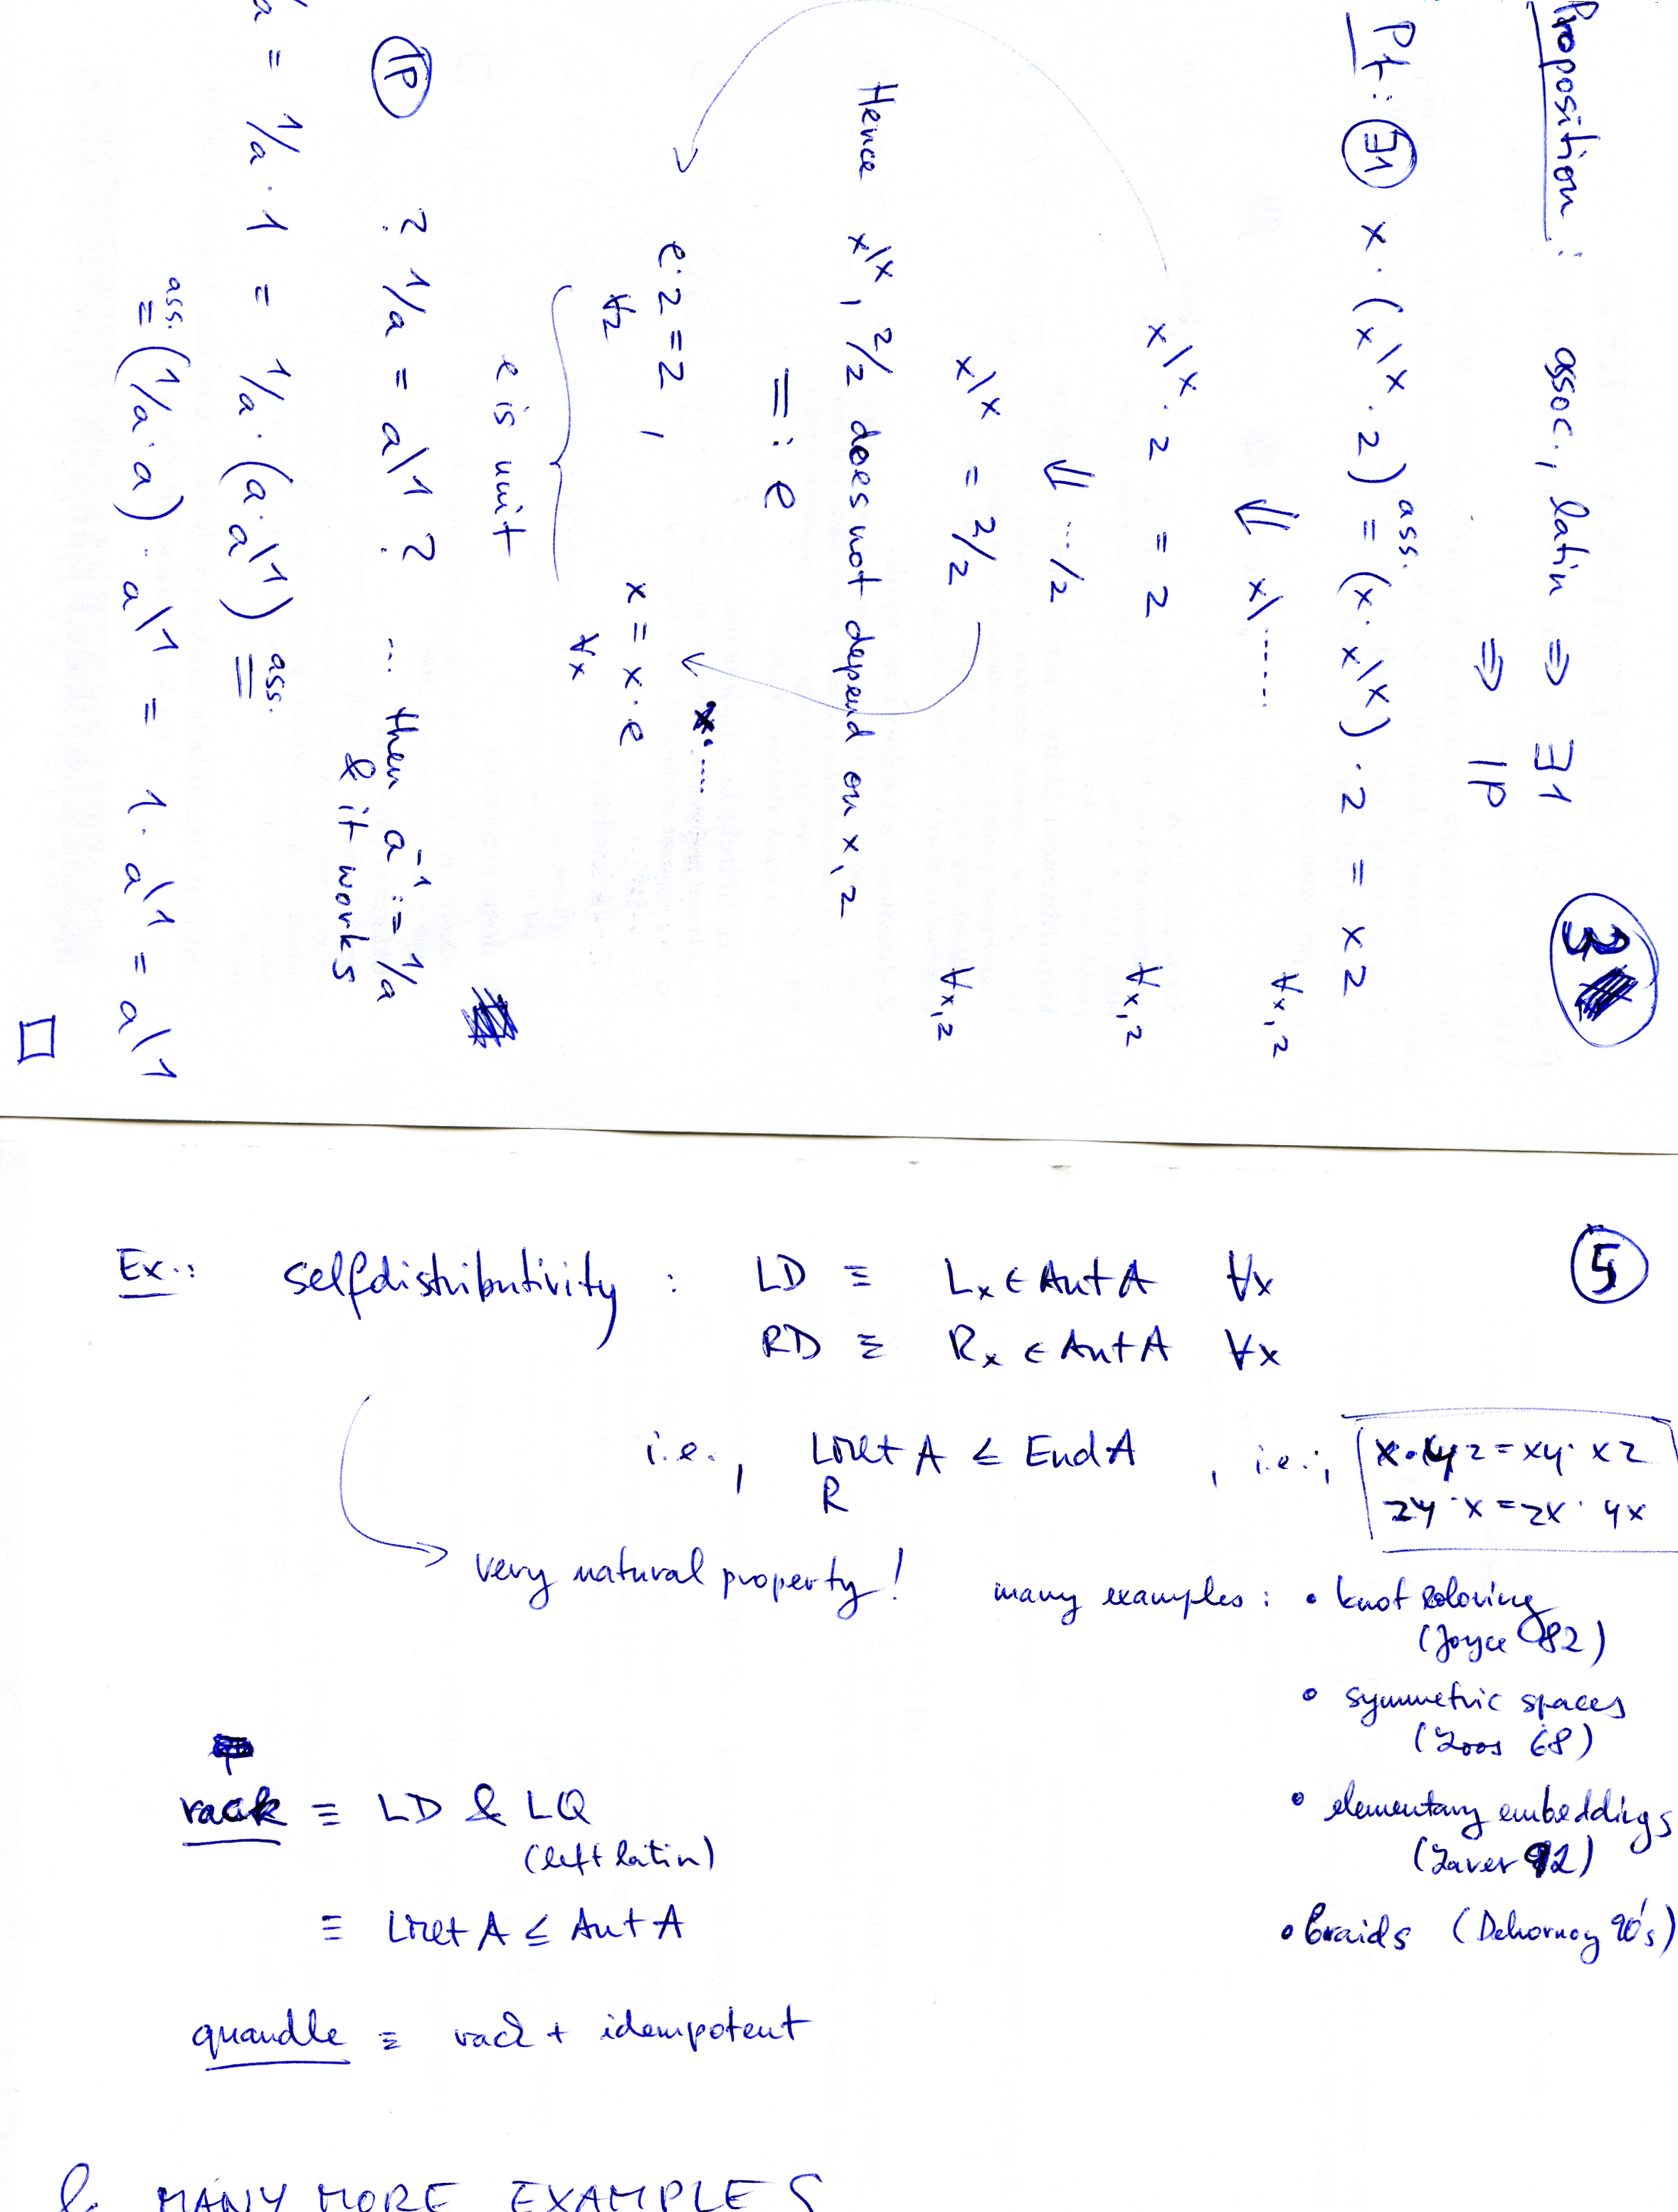 Proposition : assoc., latin ⇒ ∃1
⇒ IP
3
Pf.: ∃1 x · (x\x · z) =ass. (x · x\x) · z = xz ∀x,z
⇓ x\......
x\x · z = z ∀x,z
⇓ ... /z
x\x = z/z ∀x,z
Hence x\x , z/z does not depend on x, z
=: e
x· ....
e·z = z , x = x·e
∀z ∀x
e is unit
IP ? 1/a = a\1 ? ... then a⁻¹ := 1/a
& it works
a = 1/a · 1 = 1/a · (a · a\1) =ass.
=ass. (1/a · a) · a\1 = 1 · a\1 = a\1
□
5
Ex.: selfdistributivity : LD ≡ Lx ∈ Aut A ∀x
RD ≡ Rx ∈ Aut A ∀x
i.e., LMlt A ≤ End A , i.e., x·yz = xy · xz
R zy · x = zx · yx
very natural property! many examples : • knot coloring
(Joyce 82)
• symmetric spaces
(Loos 68)
rack ≡ LD & LQ • elementary embeddings
(left latin) (Laver 92)
≡ LMlt A ≤ Aut A • braids (Dehornoy 90's)
quandle ≡ rack + idempotent
& MANY MORE EXAMPLES